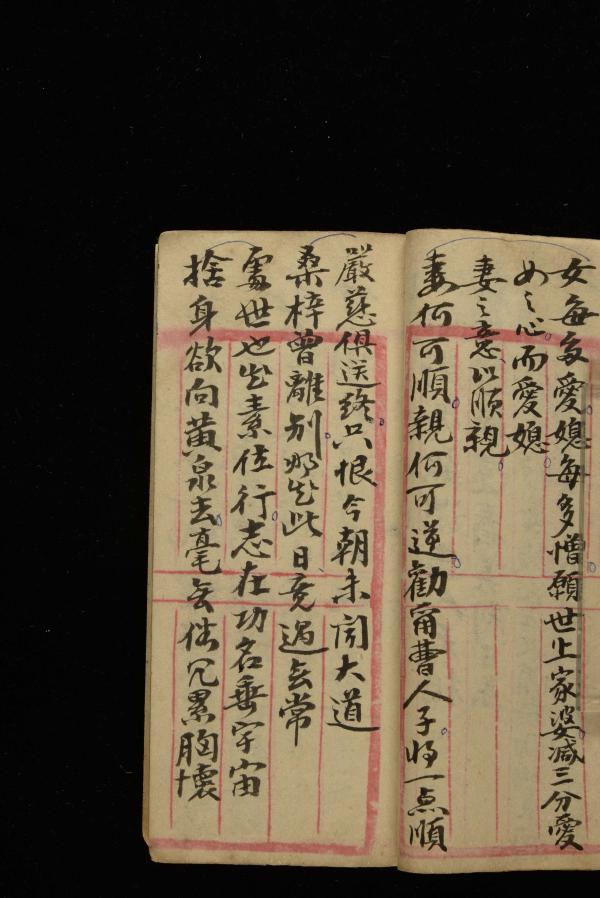 女每多愛媳每多憎願世上家婆减三分愛
女之心而愛媳
妻何可順親何可逆勸甭曹人子将一点順
妻之意以順親
嚴慈俱送終只恨今朝未闻大道
桑梓曾離别那堪此日竟遇無常
處世也当素位行志在功名垂宇宙
捨身欲向黄泉去毫無俗冗累胸懷